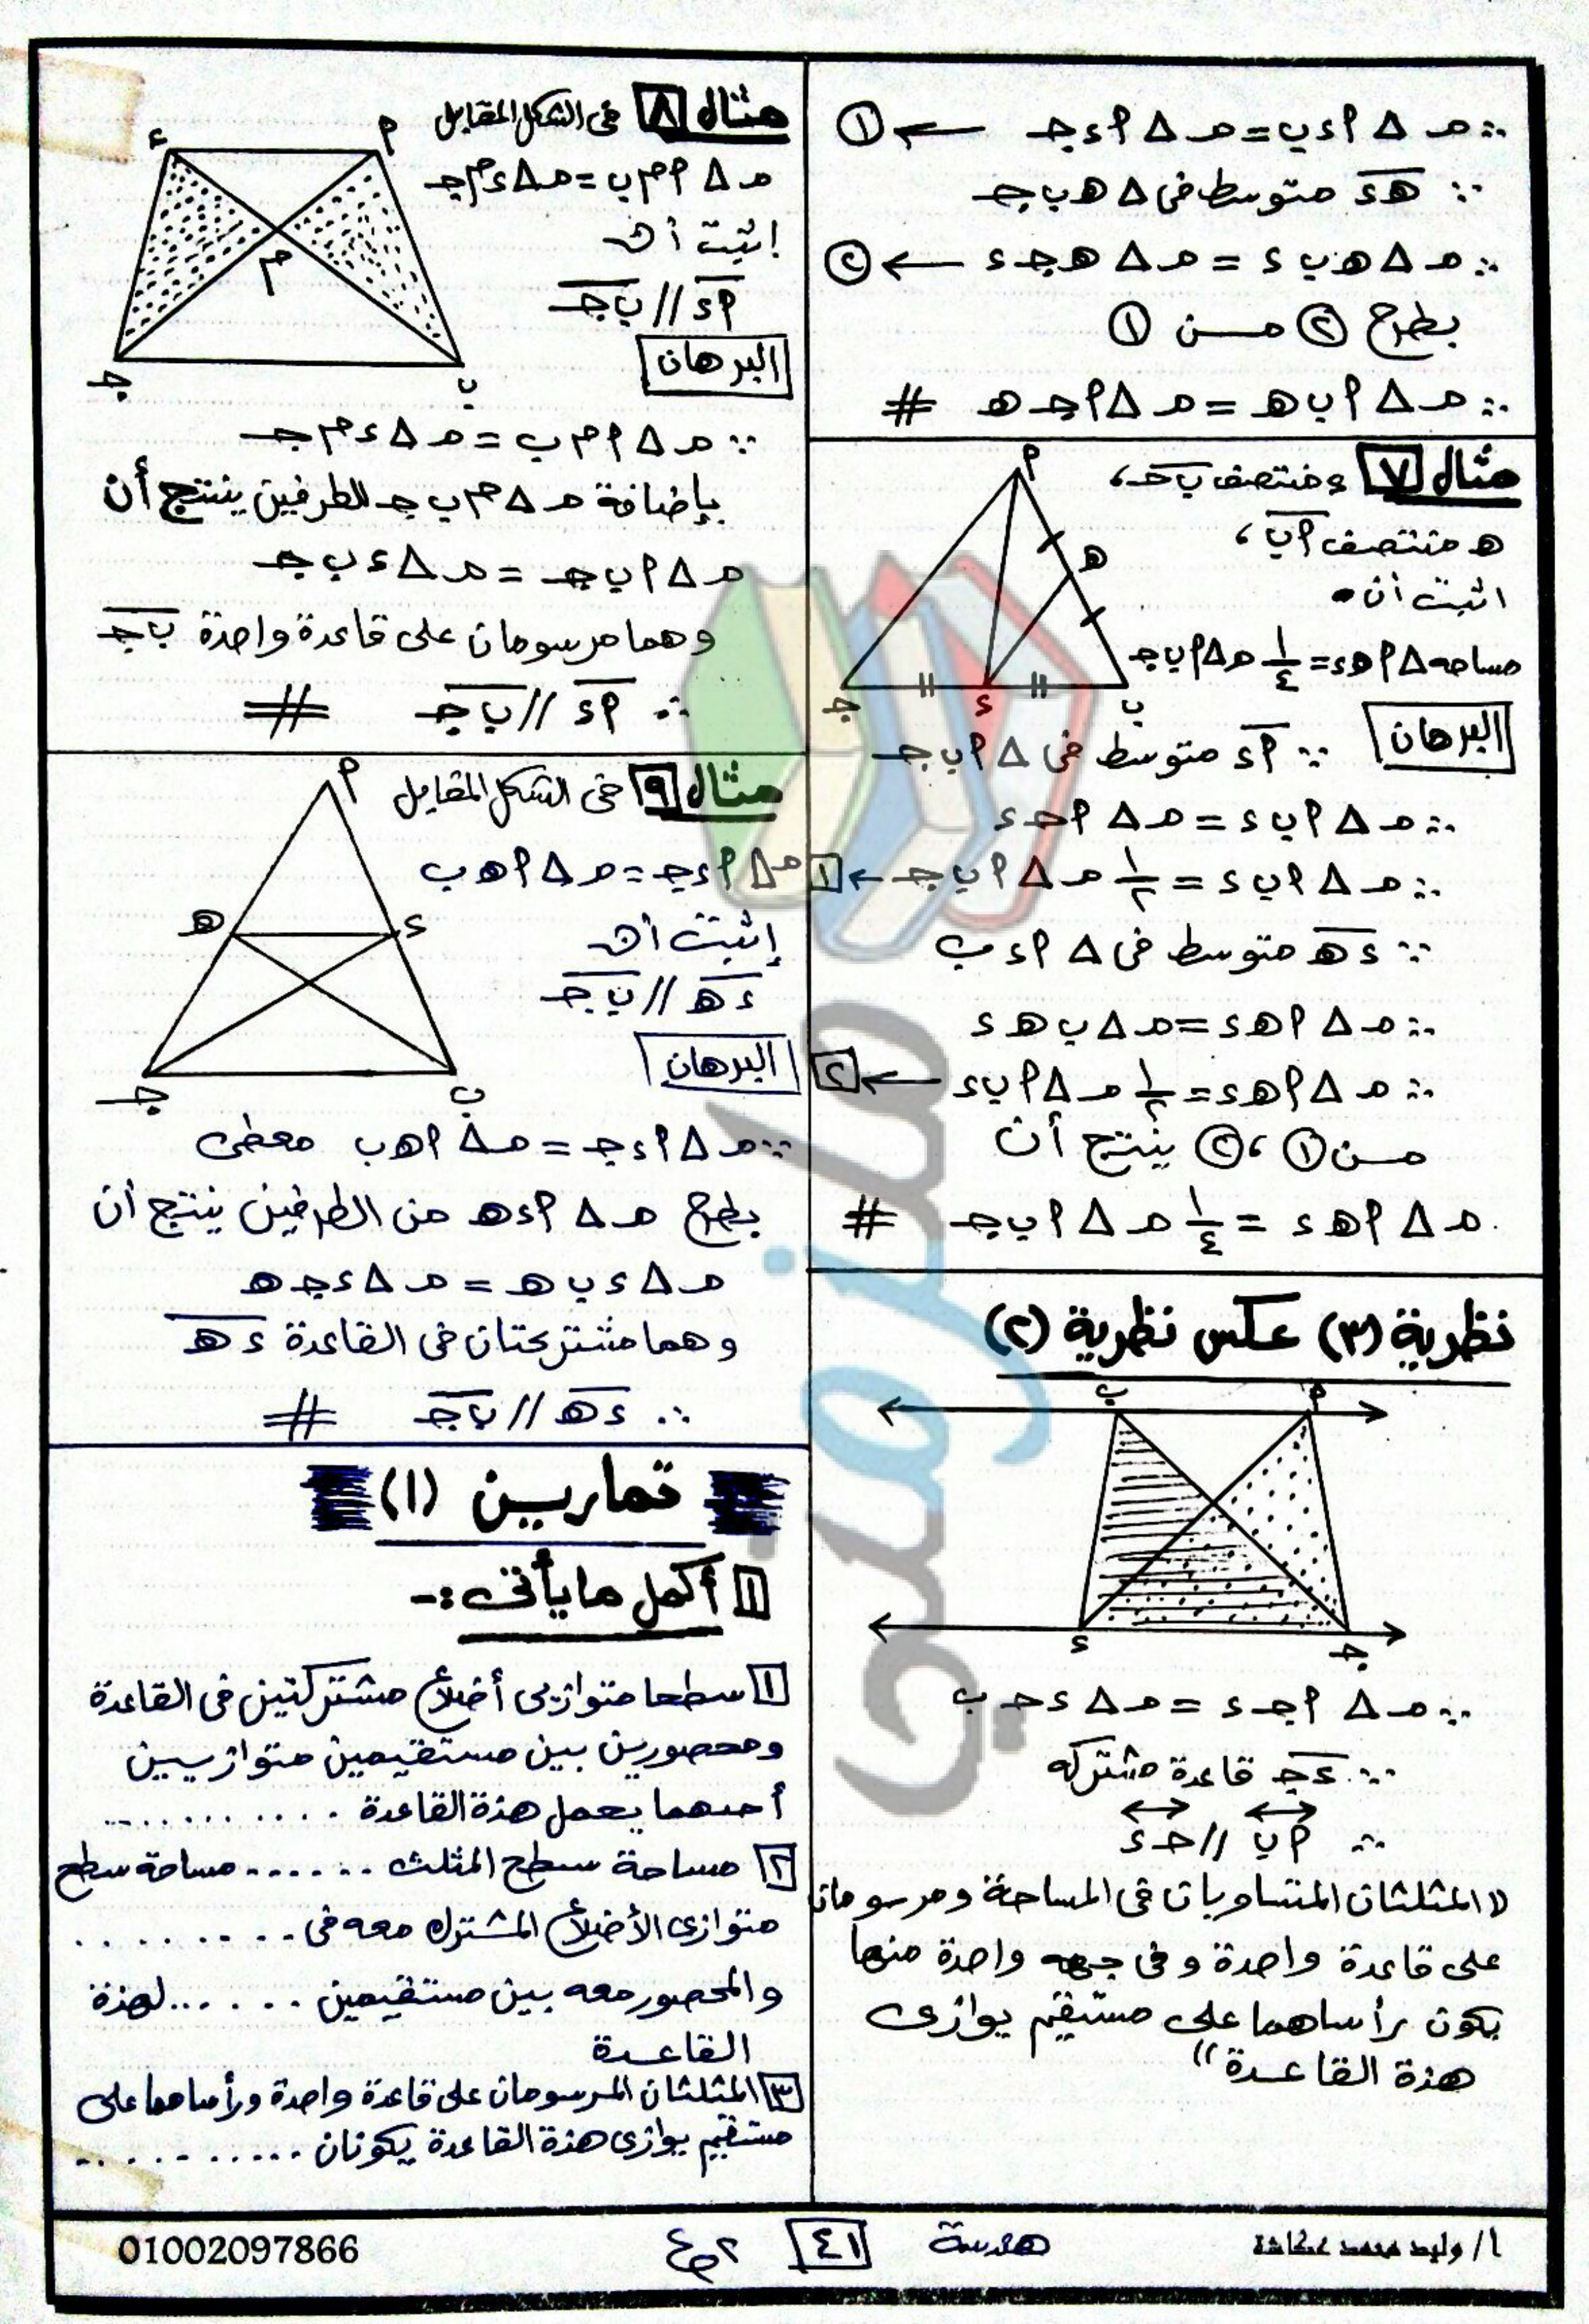 ∴ م Δ أ ء ب = م Δ أ ء جـ ← ①
∵ هـ ء متوسط فى Δ هـ ب جـ
∴ م Δ هـ ب ء = م Δ هـ جـ ء ← ②
بطرح ② مـن ①
∴ م Δ أ ب هـ = م Δ أ جـ هـ #
مثال ٧ ء منتصف ب جـ ،
هـ منتصف أ ب ،
اثبت أن
مساحه Δ أ هـ ء = ١/٤ م Δ أ ب جـ
أ
هـ
جـ ء ب
البرهان
∵ أ ء متوسط فى Δ أ ب جـ
∴ م Δ أ ب ء = م Δ أ جـ ء
∴ م Δ أ ب ء = ١/٢ م Δ أ ب جـ ← ١
∵ ء هـ متوسط فى Δ أ ء ب
∴ م Δ أ هـ ء = م Δ ب هـ ء
∴ م Δ أ هـ ء = ١/٢ م Δ أ ب ء ← ٢
مـن ① ، ② ينتج أن
م Δ أ هـ ء = ١/٤ م Δ أ ب جـ #
نظرية (٣) عكس نظرية (٢)
ب أ
ء جـ
∵ م Δ أ جـ ء = م Δ ء جـ ب
∵ ء جـ قاعدة مشتركه
∴ أ ب // جـ ء
(( المثلثان المتساويان فى المساحة ومرسومان
على قاعدة واحدة و فى جهه واحدة منها
يكون رأساهما على مستقيم يوازى
هذة القاعدة ))
مثال ٨ فى الشكل المقابل
م Δ أ م ب = م Δ ء م جـ
إثبت أن
أ ء // ب جـ
ء أ
م
جـ ب
البرهان
∵ م Δ أ م ب = م Δ ء م جـ
بإضافة م Δ م ب جـ للطرفين ينتج أن
م Δ أ ب جـ = م Δ ء ب جـ
وهما مرسومان على قاعدة واحدة ب جـ
∴ أ ء // ب جـ #
مثال ٩ فى الشكل المقابل
م Δ أ ء جـ = م Δ أ هـ ب
إثبت أن
ء هـ // ب جـ
أ
هـ ء
جـ ب
البرهان
∵ م Δ أ ء جـ = م Δ أ هـ ب معطى
بطرح م Δ أ ء هـ من الطرفين ينتج أن
م Δ ء ب هـ = م Δ ء جـ هـ
وهما مشتركتان فى القاعدة ء هـ
∴ ء هـ // ب جـ #
تمارين (١)
١ أكمل ما يأتى :-
١ سطحا متوازيى أضلاع مشتركتين فى القاعدة
ومحصورين بين مستقيمين متوازيين
أحدهما يحمل هذة القاعدة ............
٢ مساحة سطح المثلث ...... مساحة سطح
متوازى الأضلاع المشترك معه فى .........
والمحصور معه بين مستقيمين ...... لهذة
القاعدة
٣ المثلثان المرسومان على قاعدة واحدة ورأساهما على
مستقيم يوازى هذة القاعدة يكونان ...........
ملزمتي
أ / وليد محمد عكاشة
هندسة
٤١
٢ ع
01002097866